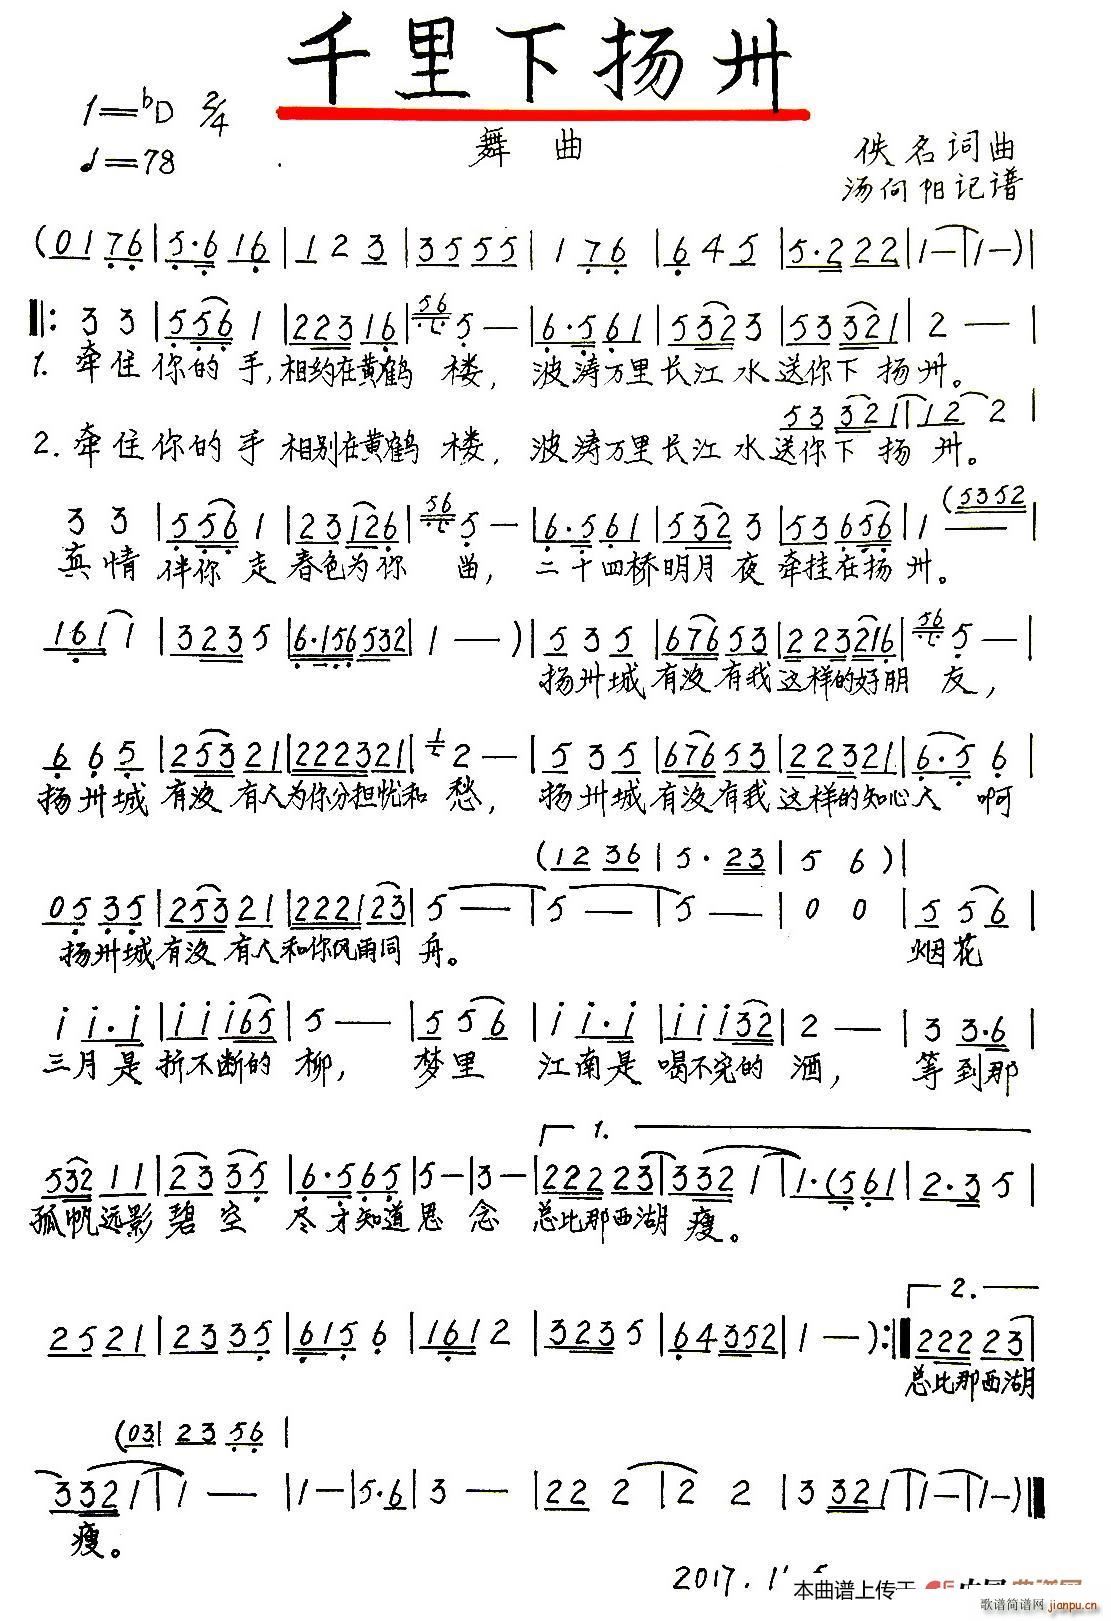 千里下扬州
1=bD 2/4
♩=78
舞曲
佚名词曲
汤向阳记谱
(0176|5·616|123|3555|176|645|5·222|1-|1-)|
‖:33|5561|22316|565-|6·561|5323|53321|2--|
1.牵住你的手,相约在黄鹤楼,波涛万里长江水送你下扬州。
53321|122|
2.牵住你的手相别在黄鹤楼,波涛万里长江水送你下扬州。
(5352
33|5561|23126|565-|6·561|5323|53656|1-|
真情伴你走春色为你留,二十四桥明月夜牵挂在扬州。
1611|3235|6·156532|1--)|535|67653|223216|565-|
扬州城有没有我这样的好朋友,
665|25321|222321|12-|535|67653|22321|6·56|
扬州城有没有人为你分担忧和愁,扬州城有没有我这样的知心人啊
(1236|5·23|56)|
0535|25321|222123|5-|5-|5-|00|556|
扬州城有没有人和你风雨同舟。烟花
i i·i|iii65|5--|556|i i·i|iii32|2--|33·6|
三月是折不断的柳,梦里江南是喝不完的酒,等到那
1.
53211|2335|6·565|5-|3-|22223|3321|1·(561|2·35|
孤帆远影碧空尽才知道思念总比那西湖瘦。
2.
2521|2335|6156|1612|3235|64352|1-):‖22223|
总比那西湖
(03|2356|
3321|1--|1-|5·6|3--|222|22|3321|1-|1-)‖
瘦。
2017.1
本曲谱上传于
歌谱简谱网
jianpu.cn